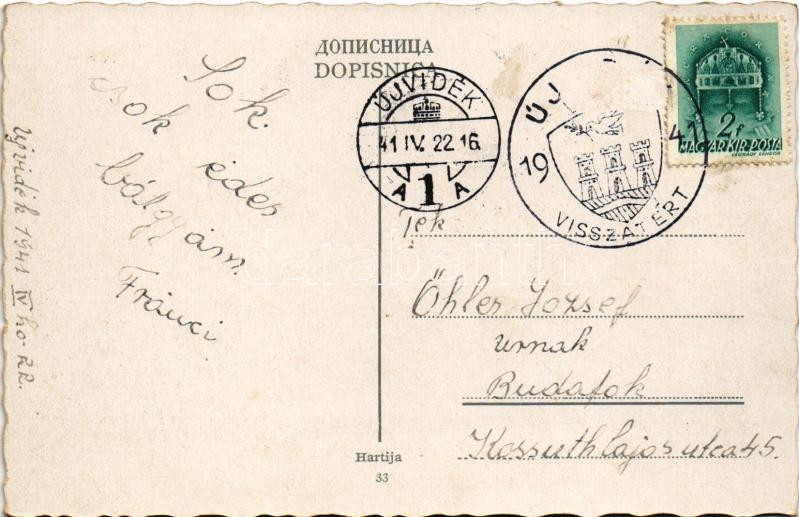 ДОПИСНИЦА
DOPISNICA
ÚJVIDÉK
41 IV. 22. 16
A 1 A
ÚJ
19 41
VISSZATÉRT
2f
MAGYAR KIR. POSTA
LÉGRÁDY SÁNDOR
Sok
sok édes
Fránci
Ujvidék 1941 IV hó 22.
Tek
Öhler József
urnak
Budafok
Kossuth Lajos utca 45.
Hartija
33
darabanth